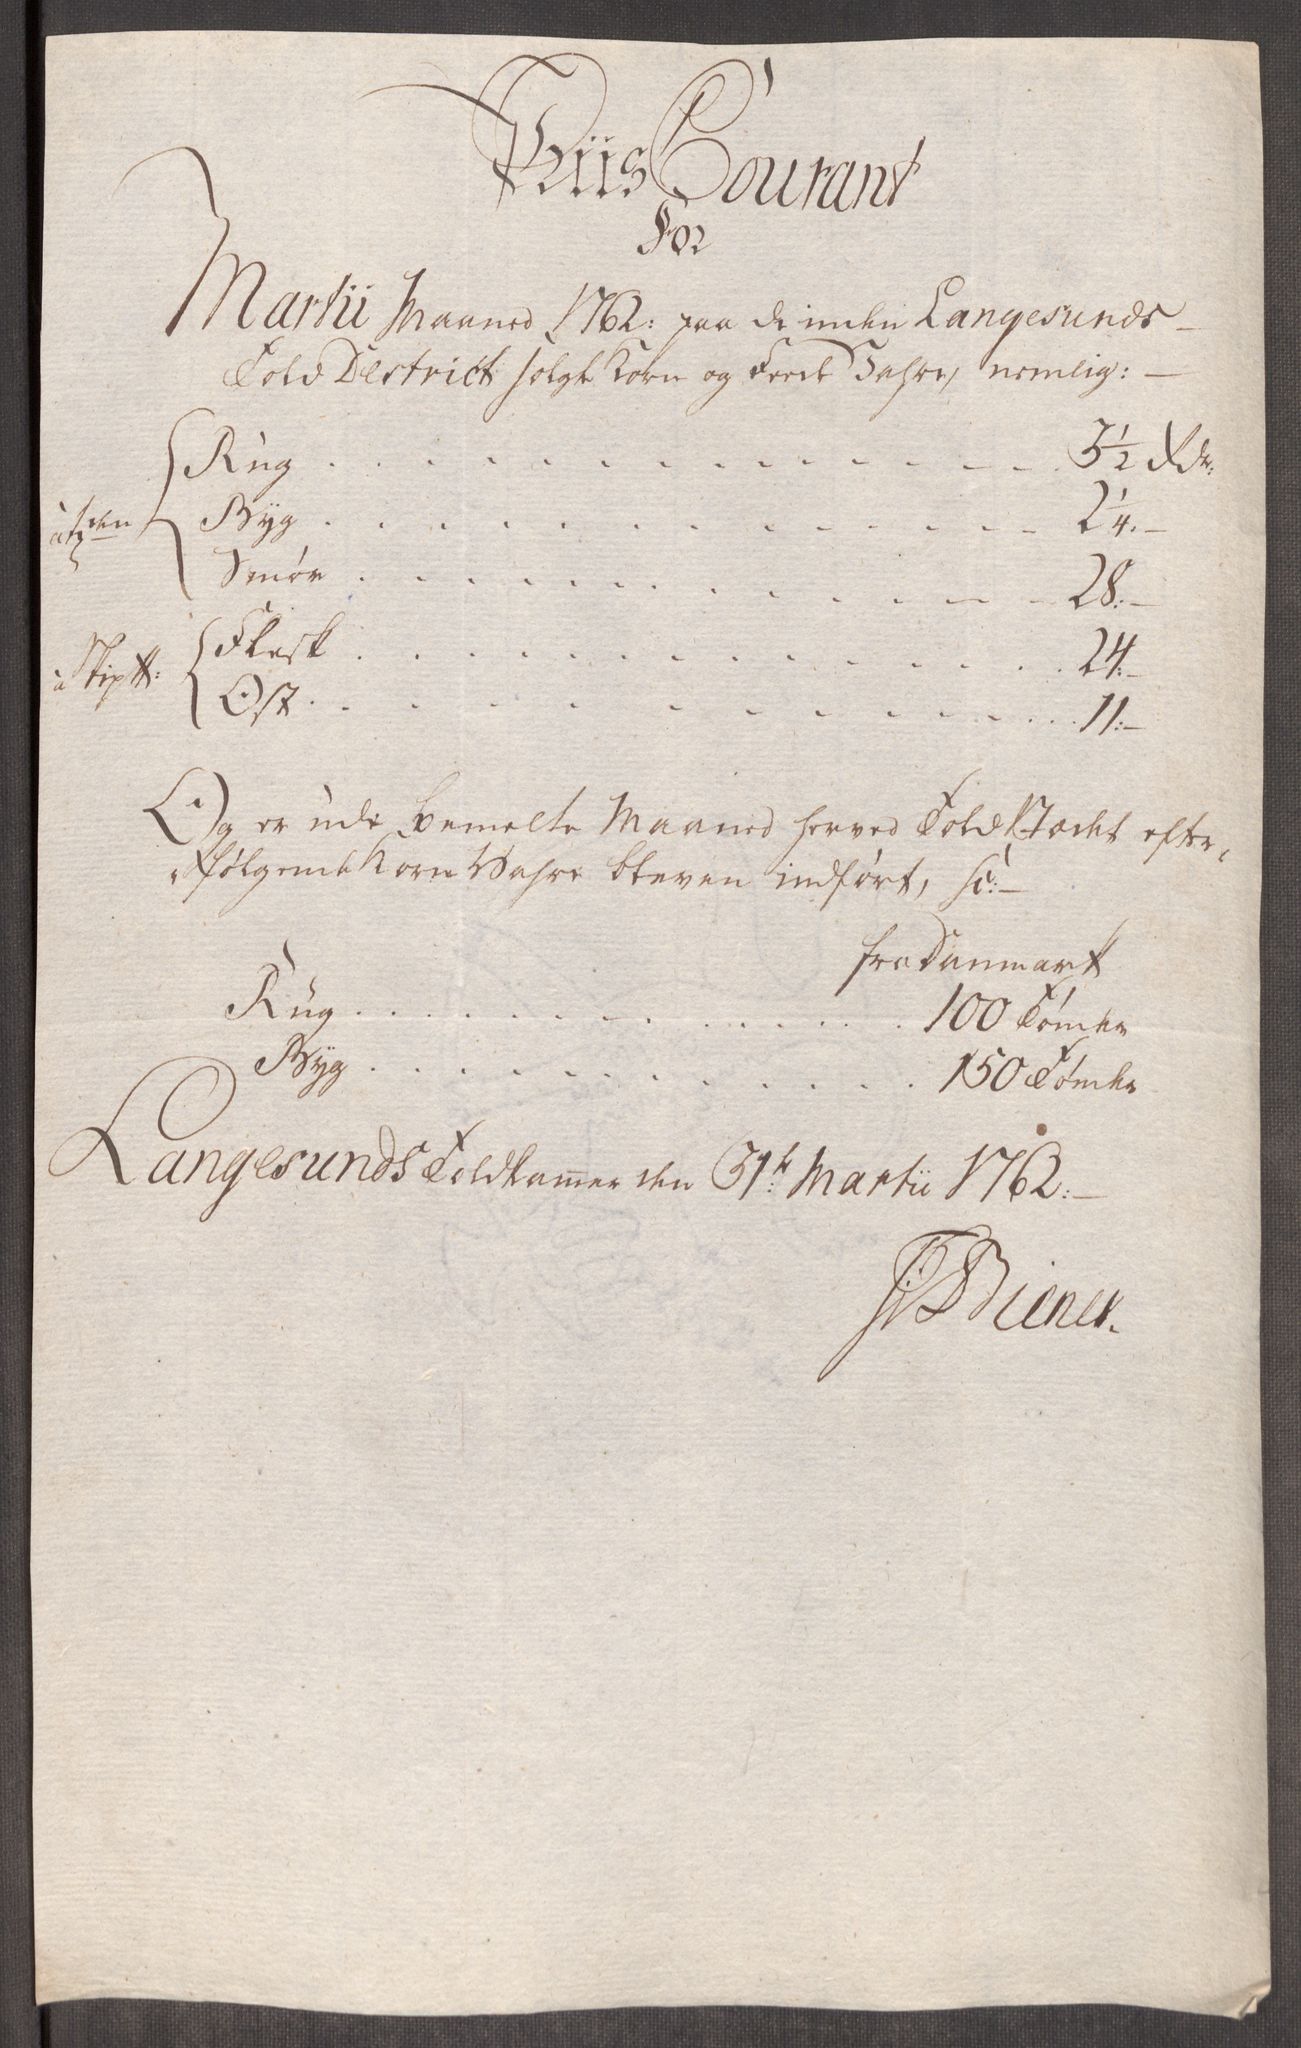 Priis Courant
For
Martii Maaned 1762: paa de inden Langesunds
Told District solgte Korn og Feede Vahre, nemlig:
Rug . . . . . . . . . . . . 3 1/2 Rdr:
à Tønden Byg . . . . . . . . . . . . 2 1/4.
Smør . . . . . . . . . . . . 28:
à Skip℔: Flesk . . . . . . . . . . . . 24:
Ost . . . . . . . . . . . . 11:
Og er udi bemelte Maaned herved Toldstædet efter-
følgende Korn Vahre bleven indført,
fra Danmark
Rug . . . . . . . . . . . . 100 Tönder
Byg . . . . . . . . . . . . 150 Tönder
Langesunds Toldkammer den 31te Martii 1762:
Biener.